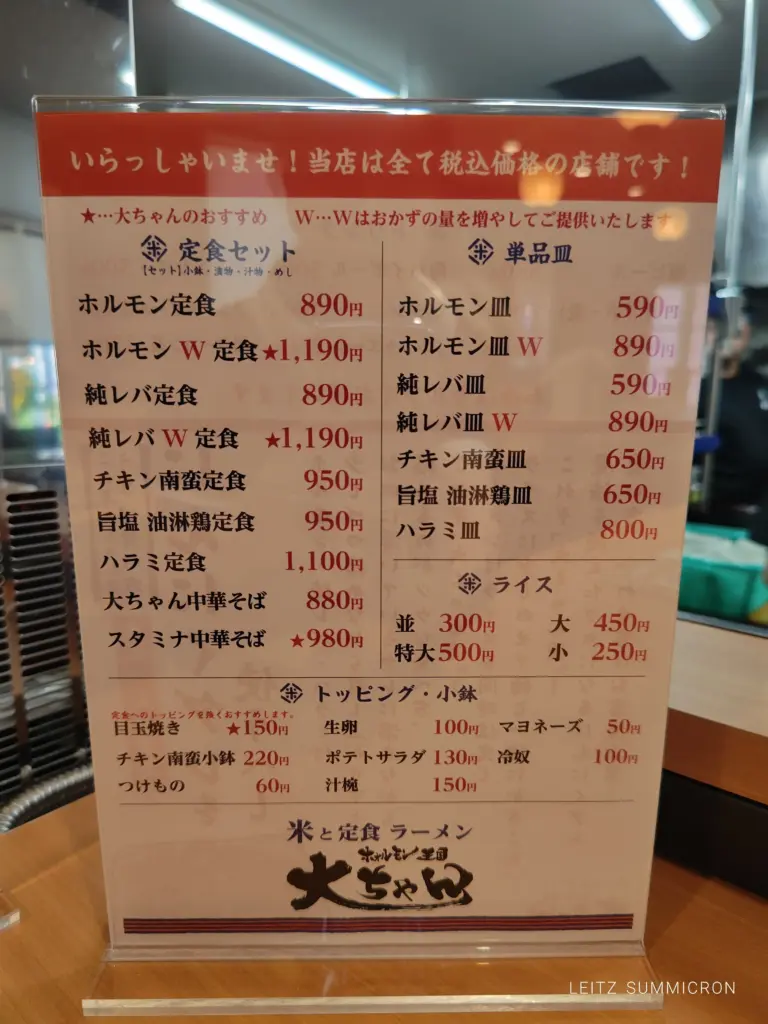 いらっしゃいませ！当店は全て税込価格の店舗です！
★…大ちゃんのおすすめ　W…Wはおかずの量を増やしてご提供いたします
米 定食セット
【セット】小鉢・漬物・汁物・めし
ホルモン定食 890円
ホルモン W 定食 ★1,190円
純レバ定食 890円
純レバ W 定食 ★1,190円
チキン南蛮定食 950円
旨塩 油淋鶏定食 950円
ハラミ定食 1,100円
大ちゃん中華そば 880円
スタミナ中華そば ★980円
米 単品皿
ホルモン皿 590円
ホルモン皿 W 890円
純レバ皿 590円
純レバ皿 W 890円
チキン南蛮皿 650円
旨塩 油淋鶏皿 650円
ハラミ皿 800円
米 ライス
並 300円 大 450円
特大 500円 小 250円
米 トッピング・小鉢
定食へのトッピングを強くおすすめします。
目玉焼き ★150円 生卵 100円 マヨネーズ 50円
チキン南蛮小鉢 220円 ポテトサラダ 130円 冷奴 100円
つけもの 60円 汁椀 150円
米と定食 ラーメン
ホルモン王国
大ちゃん
LEITZ SUMMICRON